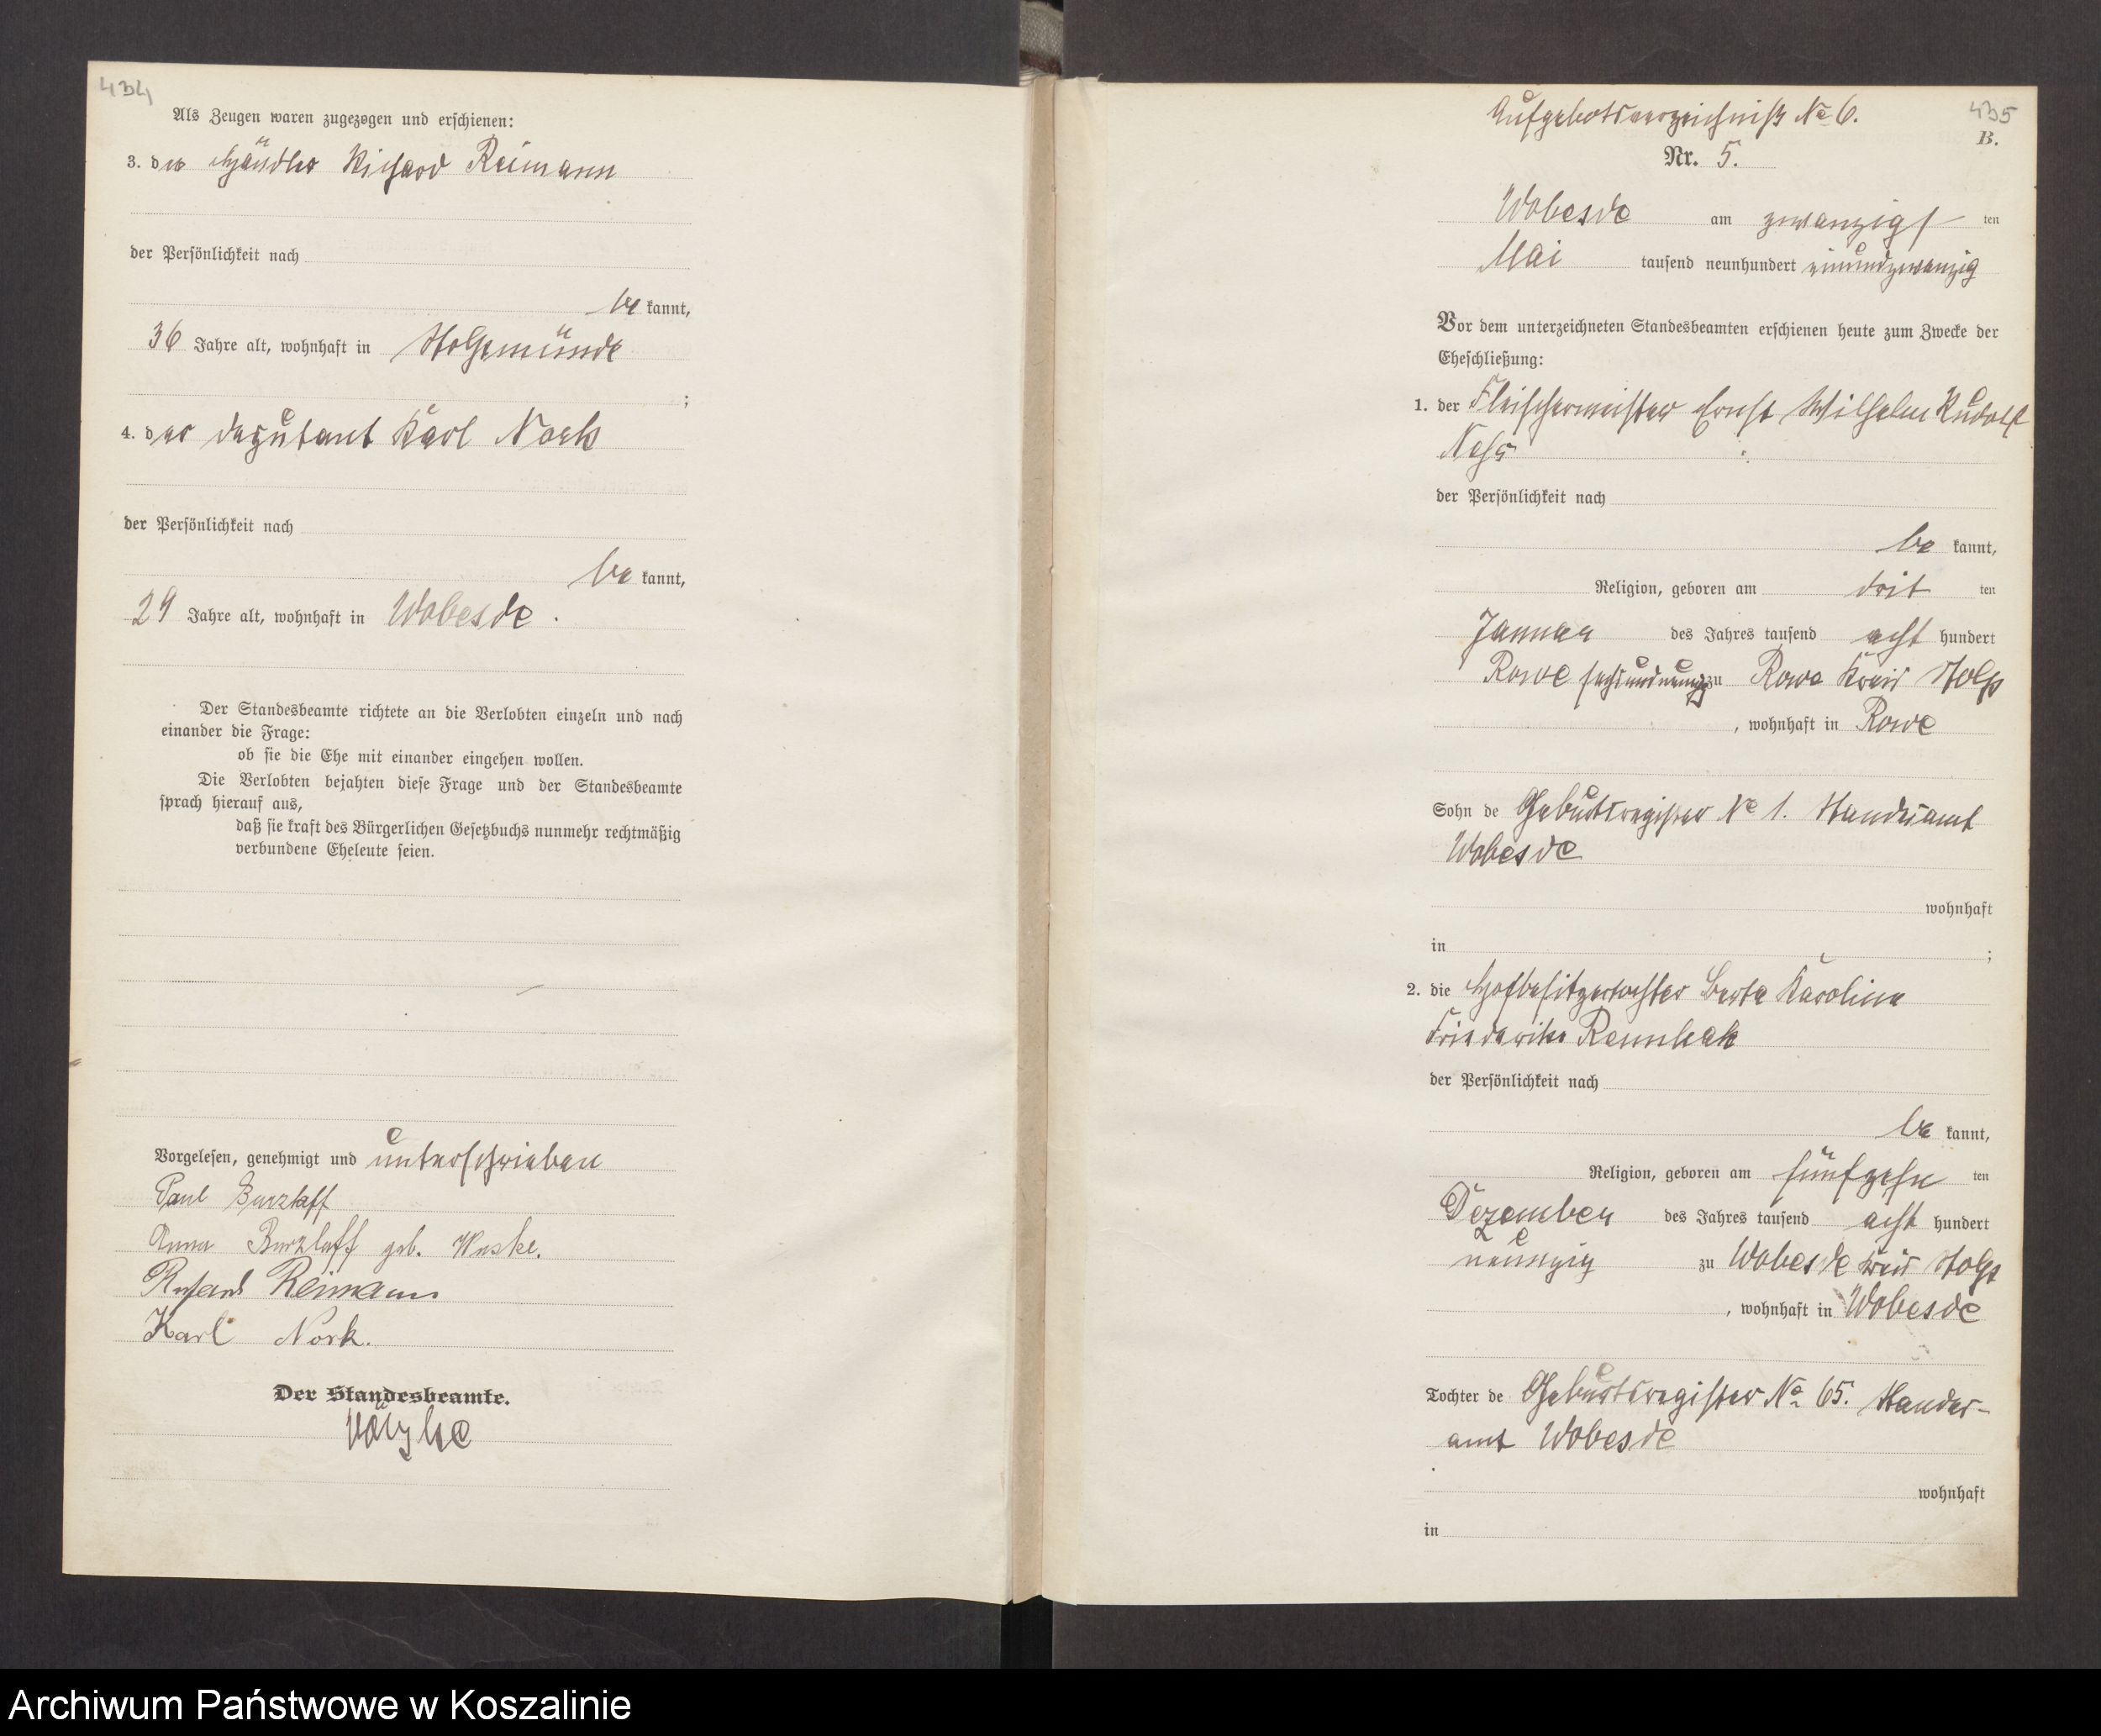 434
Als Zeugen waren zugezogen und erschienen:
3. der Händler Richard Reimann
der Persönlichkeit nach
be kannt,
36 Jahre alt, wohnhaft in Stolpmünde
;
4. der Deputant Karl Nork
der Persönlichkeit nach
be kannt,
29 Jahre alt, wohnhaft in Wobesde.
Der Standesbeamte richtete an die Verlobten einzeln und nach
einander die Frage:
ob sie die Ehe mit einander eingehen wollen.
Die Verlobten bejahten diese Frage und der Standesbeamte
sprach hierauf aus,
daß sie kraft des Bürgerlichen Gesetzbuchs nunmehr rechtmäßig
verbundene Eheleute seien.
Vorgelesen, genehmigt und unterschrieben
Paul Burzlaff
Anna Burzlaff geb.
Richard Reimann
Karl Nork.
Der Standesbeamte.
435
Aufgebotsverzeichniß No 6.
B.
Nr. 5.
Wobesde am zwanzigs ten
Mai tausend neunhundert einundzwanzig
Vor dem unterzeichneten Standesbeamten erschienen heute zum Zwecke der
Eheschließung:
1. der Fleischermeister Ernst Wilhelm Rudolf
der Persönlichkeit nach
be kannt,
Religion, geboren am drit ten
Januar des Jahres tausend acht hundert
Rowe sechsundneunzig zu Rowe Kreis Stolp
, wohnhaft in Rowe
Sohn de Geburtsregister No 1. Standesamt
Wobesde
wohnhaft
in ;
2. die Hofbesitzertochter Berta Karoline
Friederike Rennhak
der Persönlichkeit nach
be kannt,
Religion, geboren am fünfzehn ten
Dezember des Jahres tausend acht hundert
neunzig zu Wobesde Kreis Stolp
, wohnhaft in Wobesde
Tochter de Geburtsregister No 65. Standes-
amt Wobesde
wohnhaft
in
Archiwum Państwowe w Koszalinie